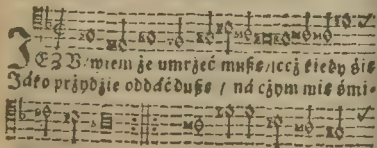 JEZU wiem że umrzeć muszę / lecz kiedy się
Jako przydzie oddáć duszę / ná czym mię śmi-